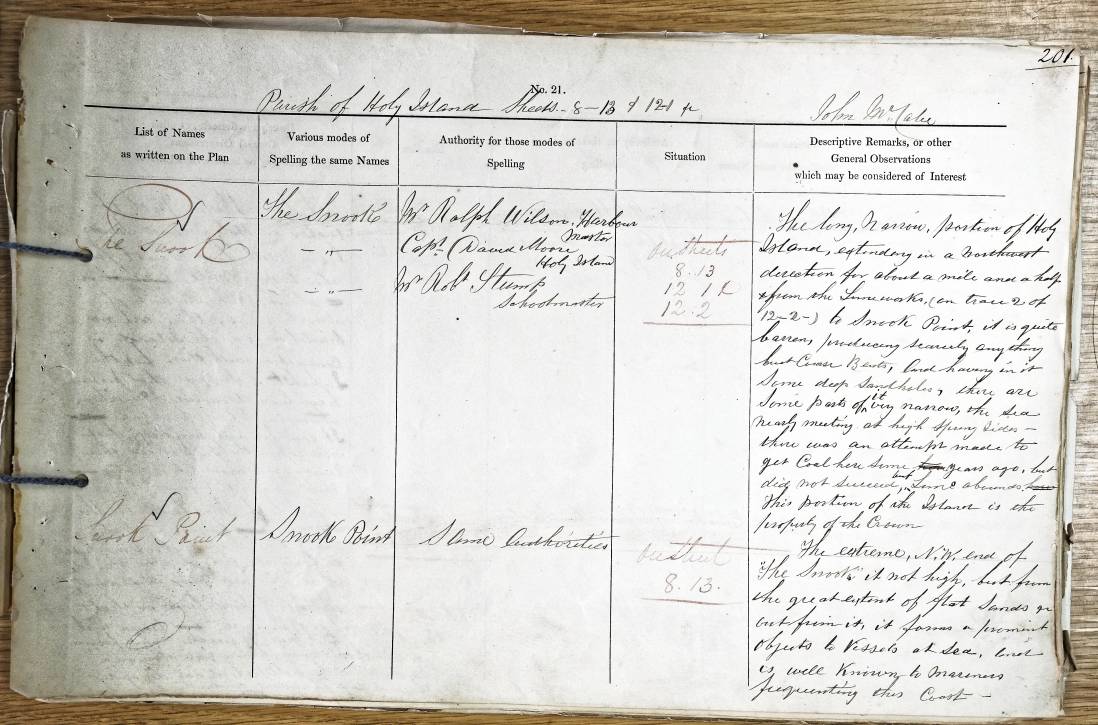 201.
No. 21.
Parish of Holy Island Sheets - 8-13 & 12-1 &
John McCabe
List of Names
as written on the Plan
Various modes of
Spelling the same Names
Authority for those modes of
Spelling
Situation
Descriptive Remarks, or other
General Observations
which may be considered of Interest
The Snook
The Snook
- „ -
- „ -
Mr Ralph Wilson, Harbour
Master
Capt. David Moore
Holy Island
Mr Robt Stump
Schoolmaster
on sheets
8.13
12 1 &
12.2
The long, Narrow, portion of Holy
Island, extending in a Northwest
direction for about a mile and a half
from the Limeworks, (on trace 2 of
12-2-) to Snook Point, it is quite
barren, producing scarcely anything
but Coarse Bents, and having in it
Some deep Sandholes, there are
Some parts of it very narrow, the Sea
nearly meeting at high Spring Tides -
there was an attempt made to
get Coal here Some years ago, but
did not succeed, but Lime abounds
This portion of the Island is the
property of the Crown
Snook Point
Snook Point
Same Authorities
on sheet
8.13.
The extreme, N.W. end of
"The Snook" it not high, but from
the great extent of flat Sands
out from it, it forms a prominent
Objects to Vessels at Sea, and
is well Known to Mariners
frequenting this Coast -